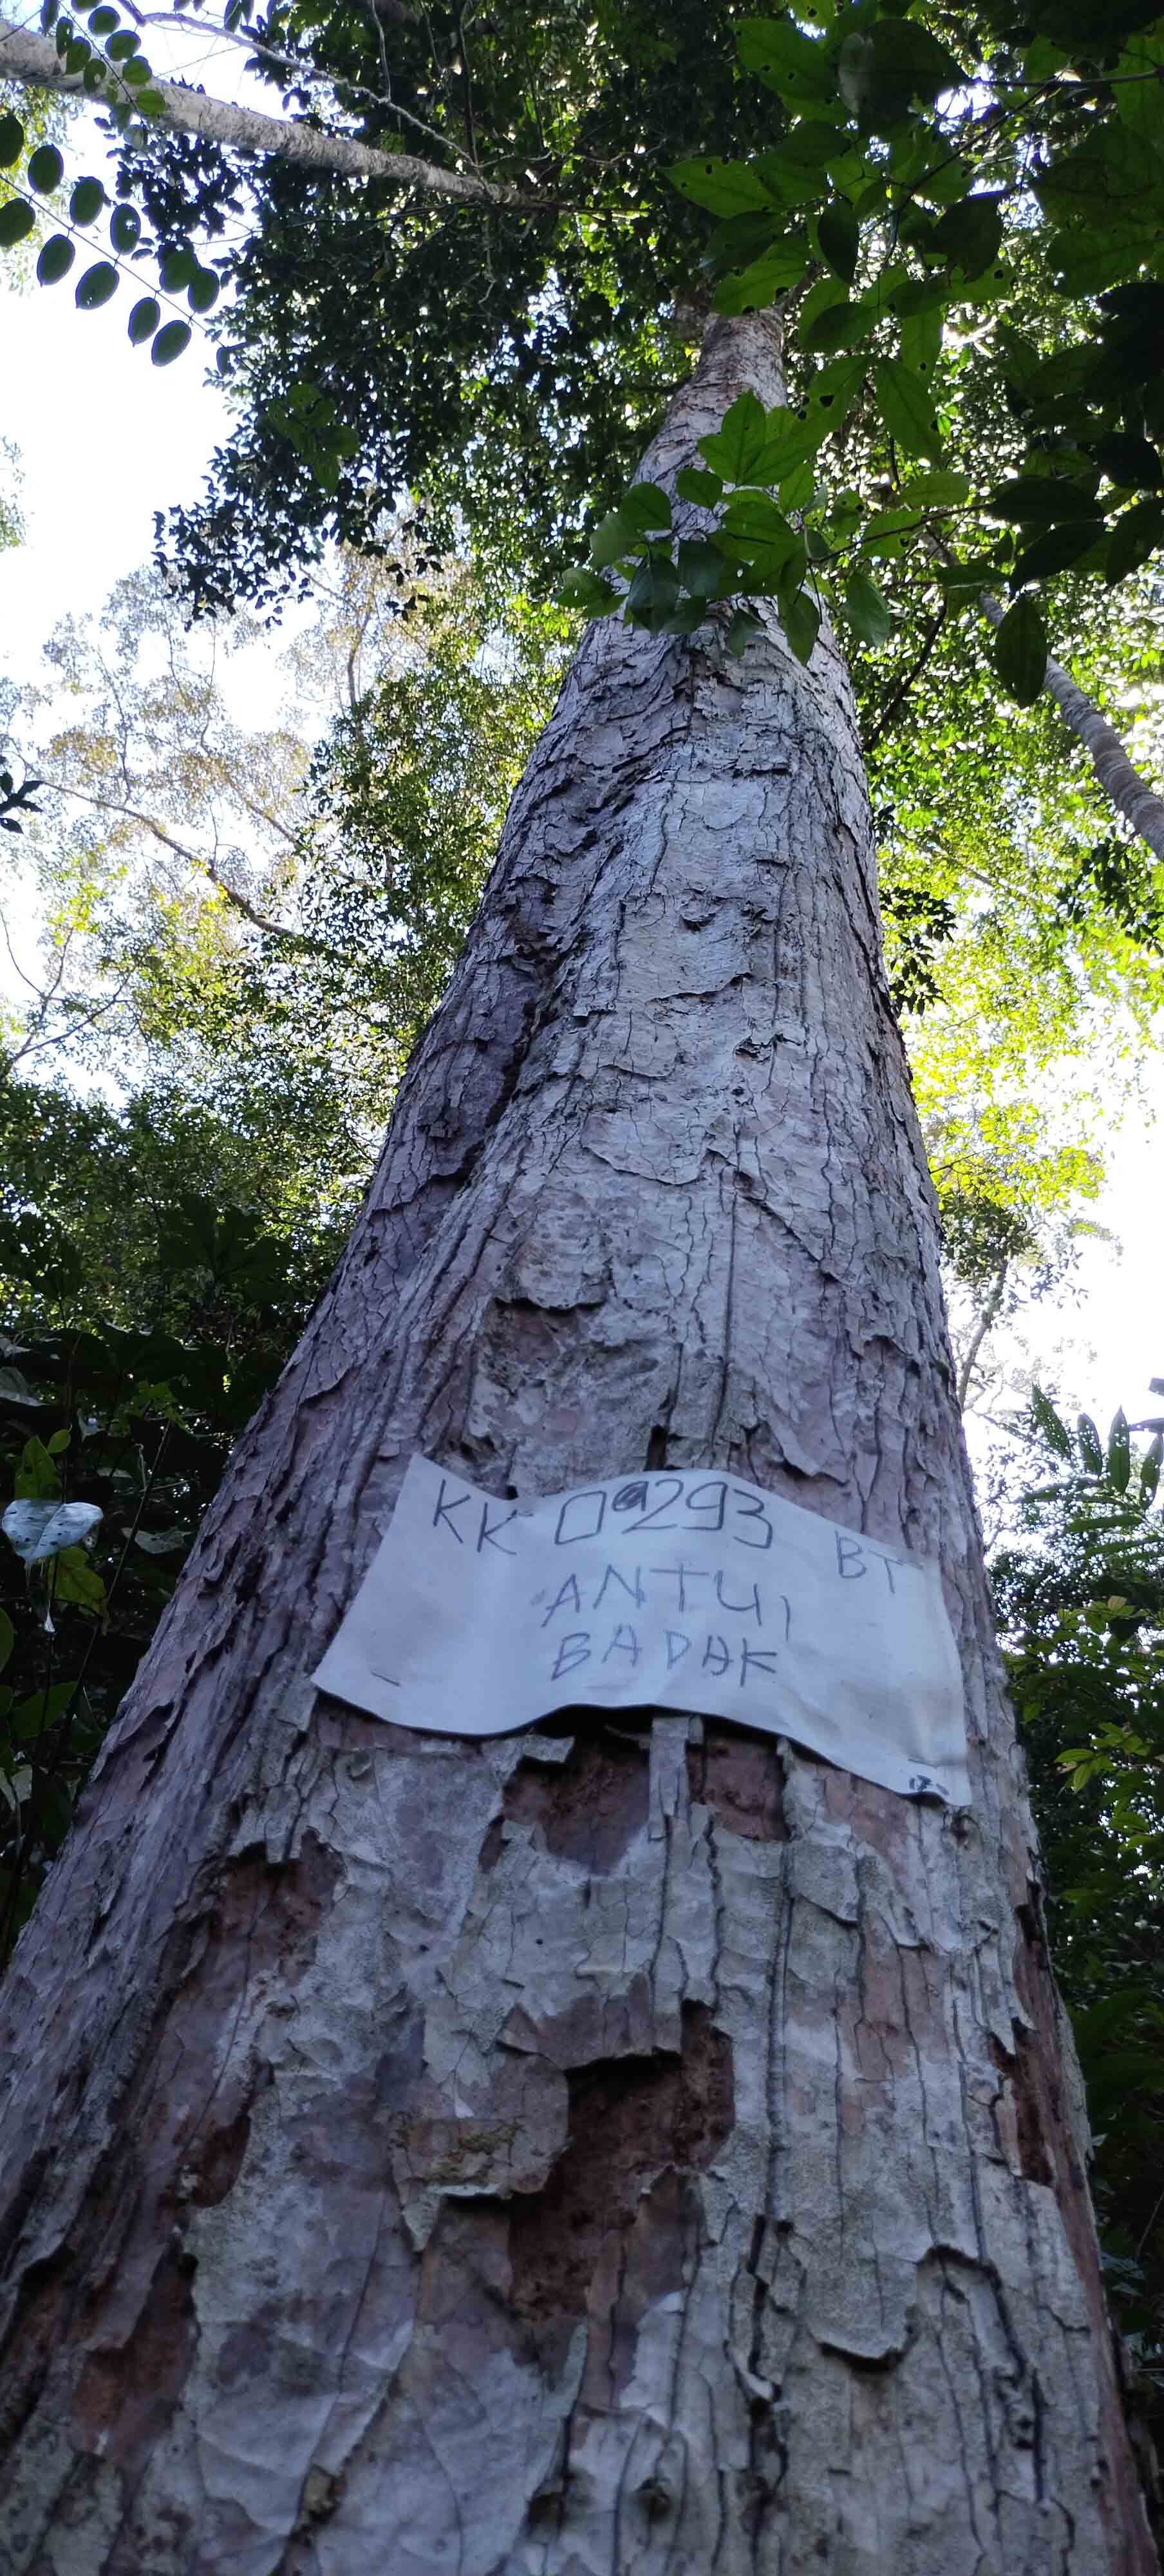 KK 0293 BT
ANTUI
BADAK